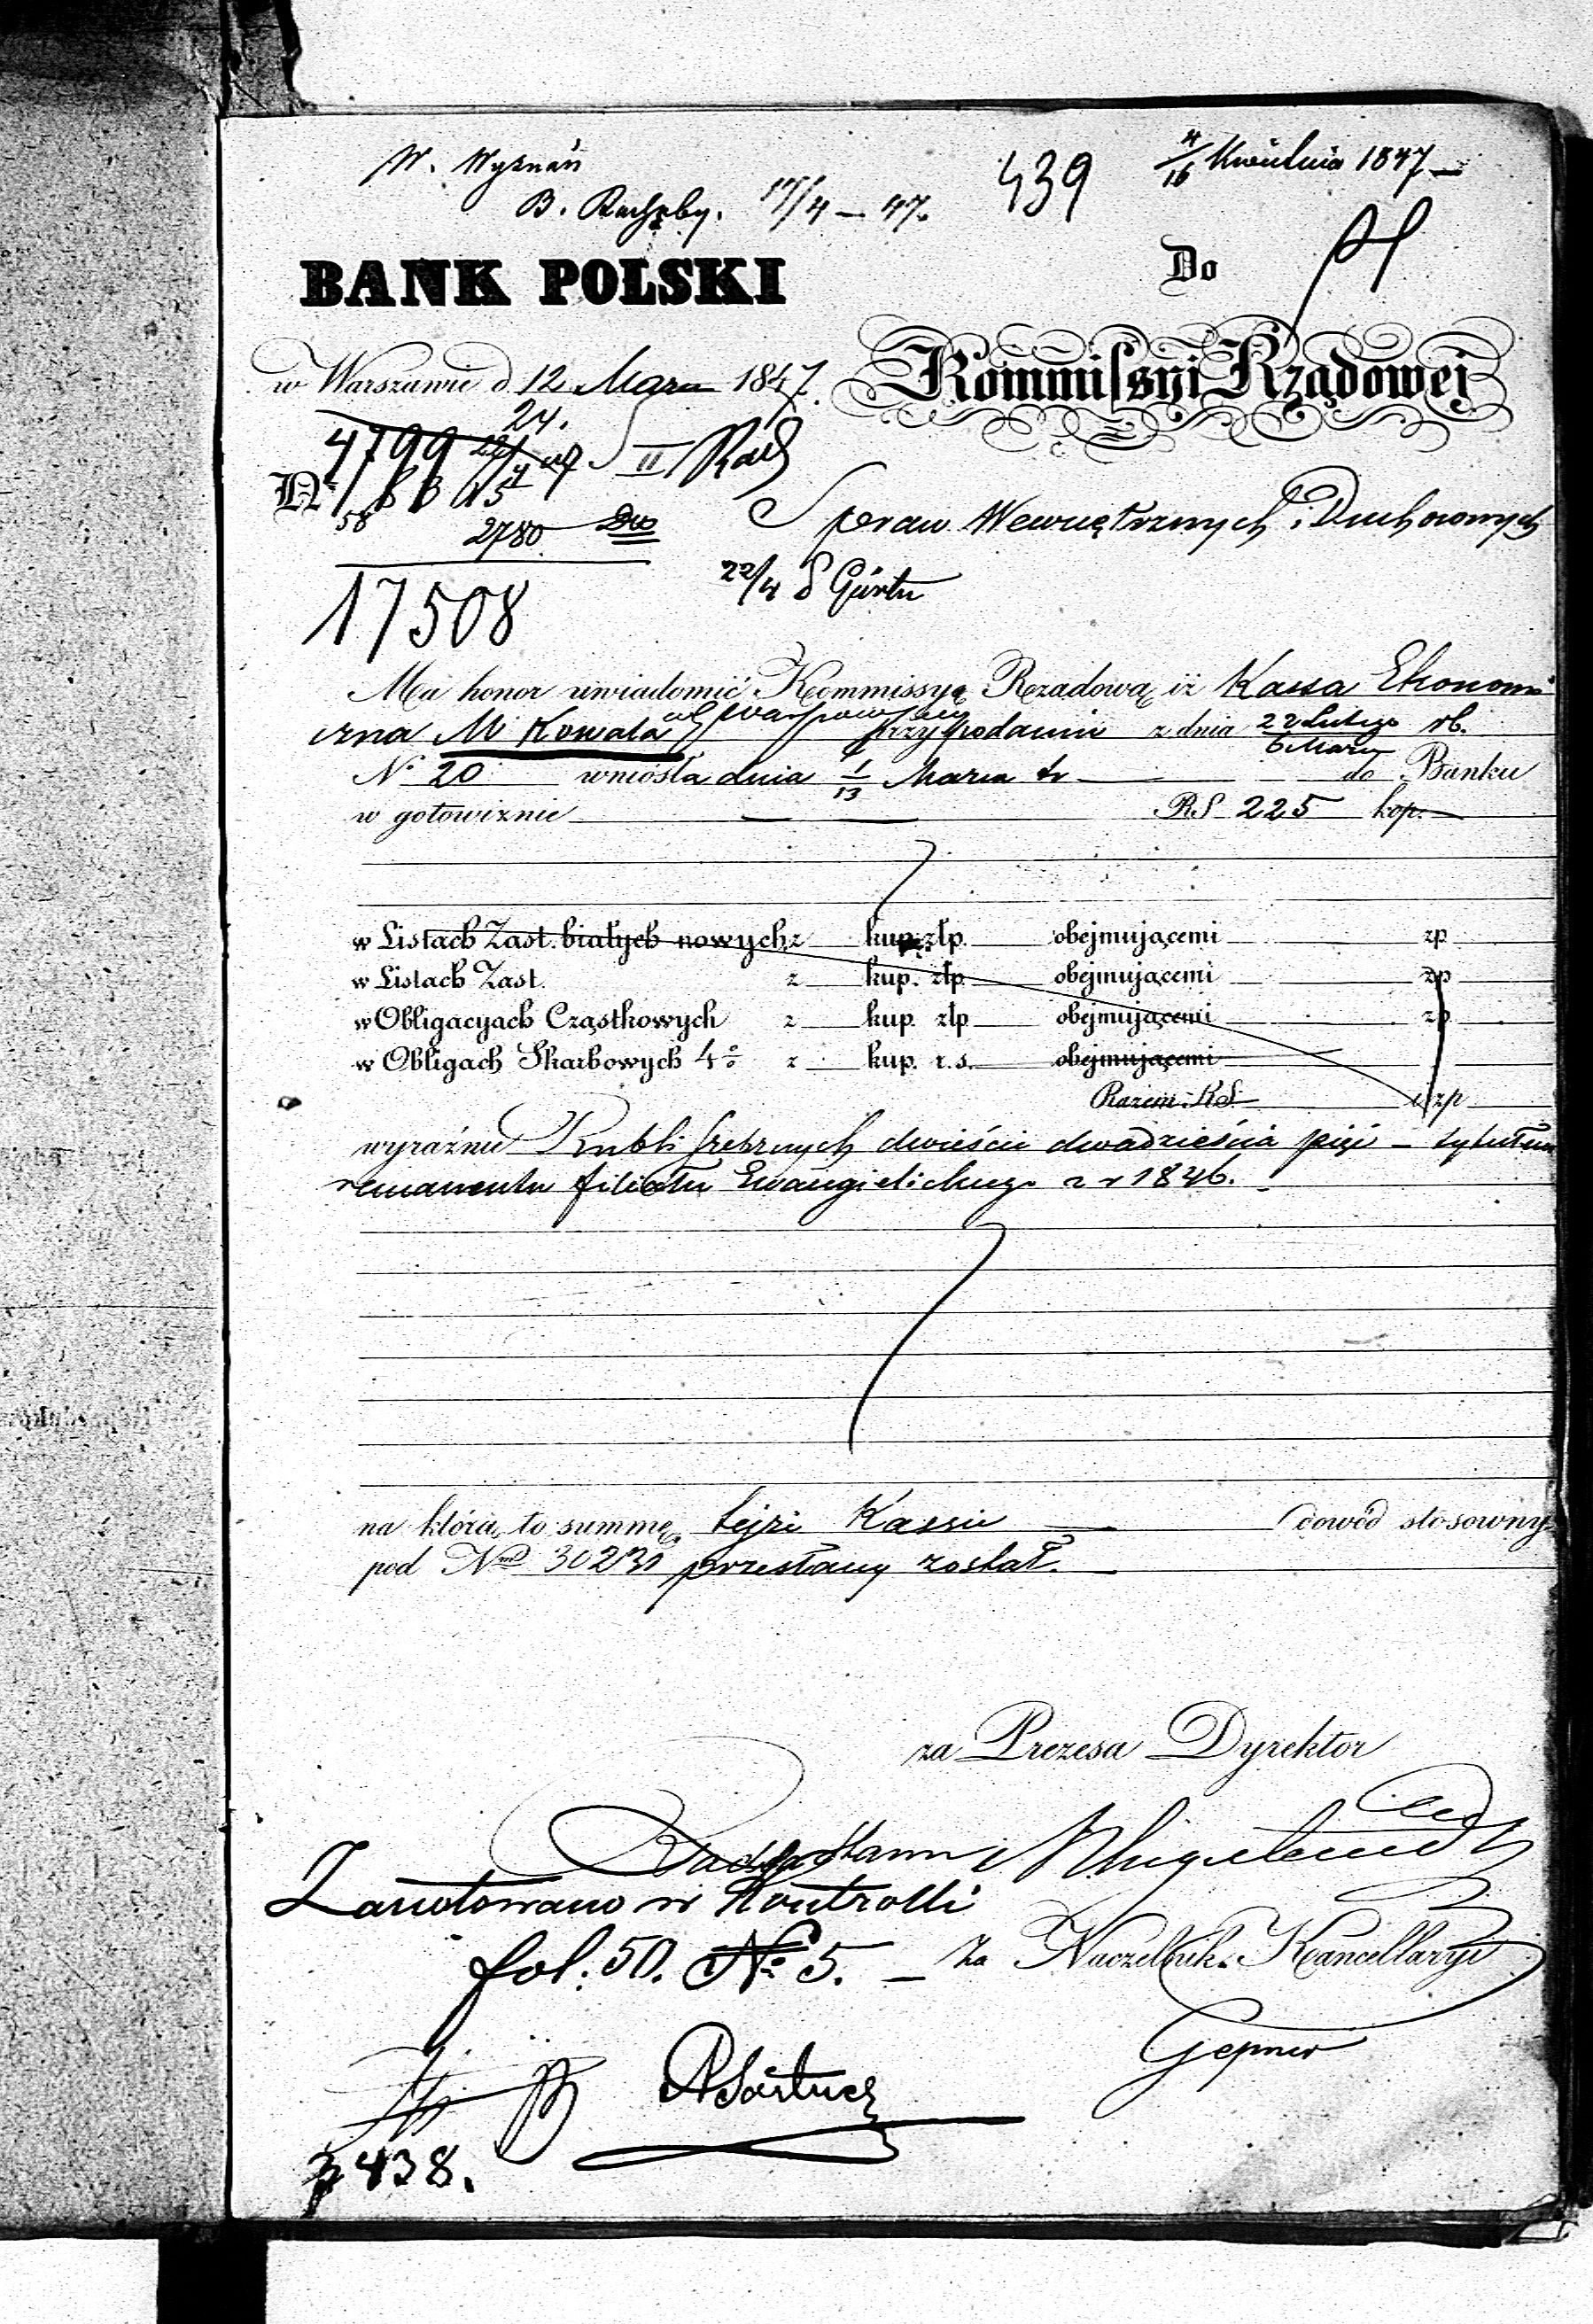 W. Wyznań
439
4/16 Kwietnia 1847
B. Rachuby. 17/4 — 47.
BANK POLSKI
Do
Kommissyi Rządowej
w Warszawie d. 12 Marca 1847.
24.
4799
II Rad
No
58
2780
Spraw Wewnętrznych i Duchownych
22/4
17508
Ma honor uwiadomić Kommissyą Rządową iż Kassa Ekonomi
czna M Kowala przy podaniu z dnia 22 Lutego rb.
6 Marca
No 20 wniosła dnia 1/13 Marca tr do Banku
w gotowiznie RS 225 kop. —
w Listach Zast. białych nowych z kup. złp. obejmującemi zp
w Listach Zast. z kup. złp. obejmującemi zp
w Obligacyach Cząstkowych z kup. złp. obejmującemi zp
w Obligach Skarbowych 4% z kup. r.s. obejmującemi
Razem RS. i zp
wyraźnie Rubli srebrnych dwieście dwadzieścia pięć — tytułem
remanentu filiału Ewangielickiego z r 1846.
na którą to summę tejże Kassie dowód stosowny
pod Nm 30231 przesłany został.
za Prezesa Dyrektor
Zanotowano w Kontrolli
fol: 50. No 5. —
za Naczelnik Kancellaryi
Gepner
438.